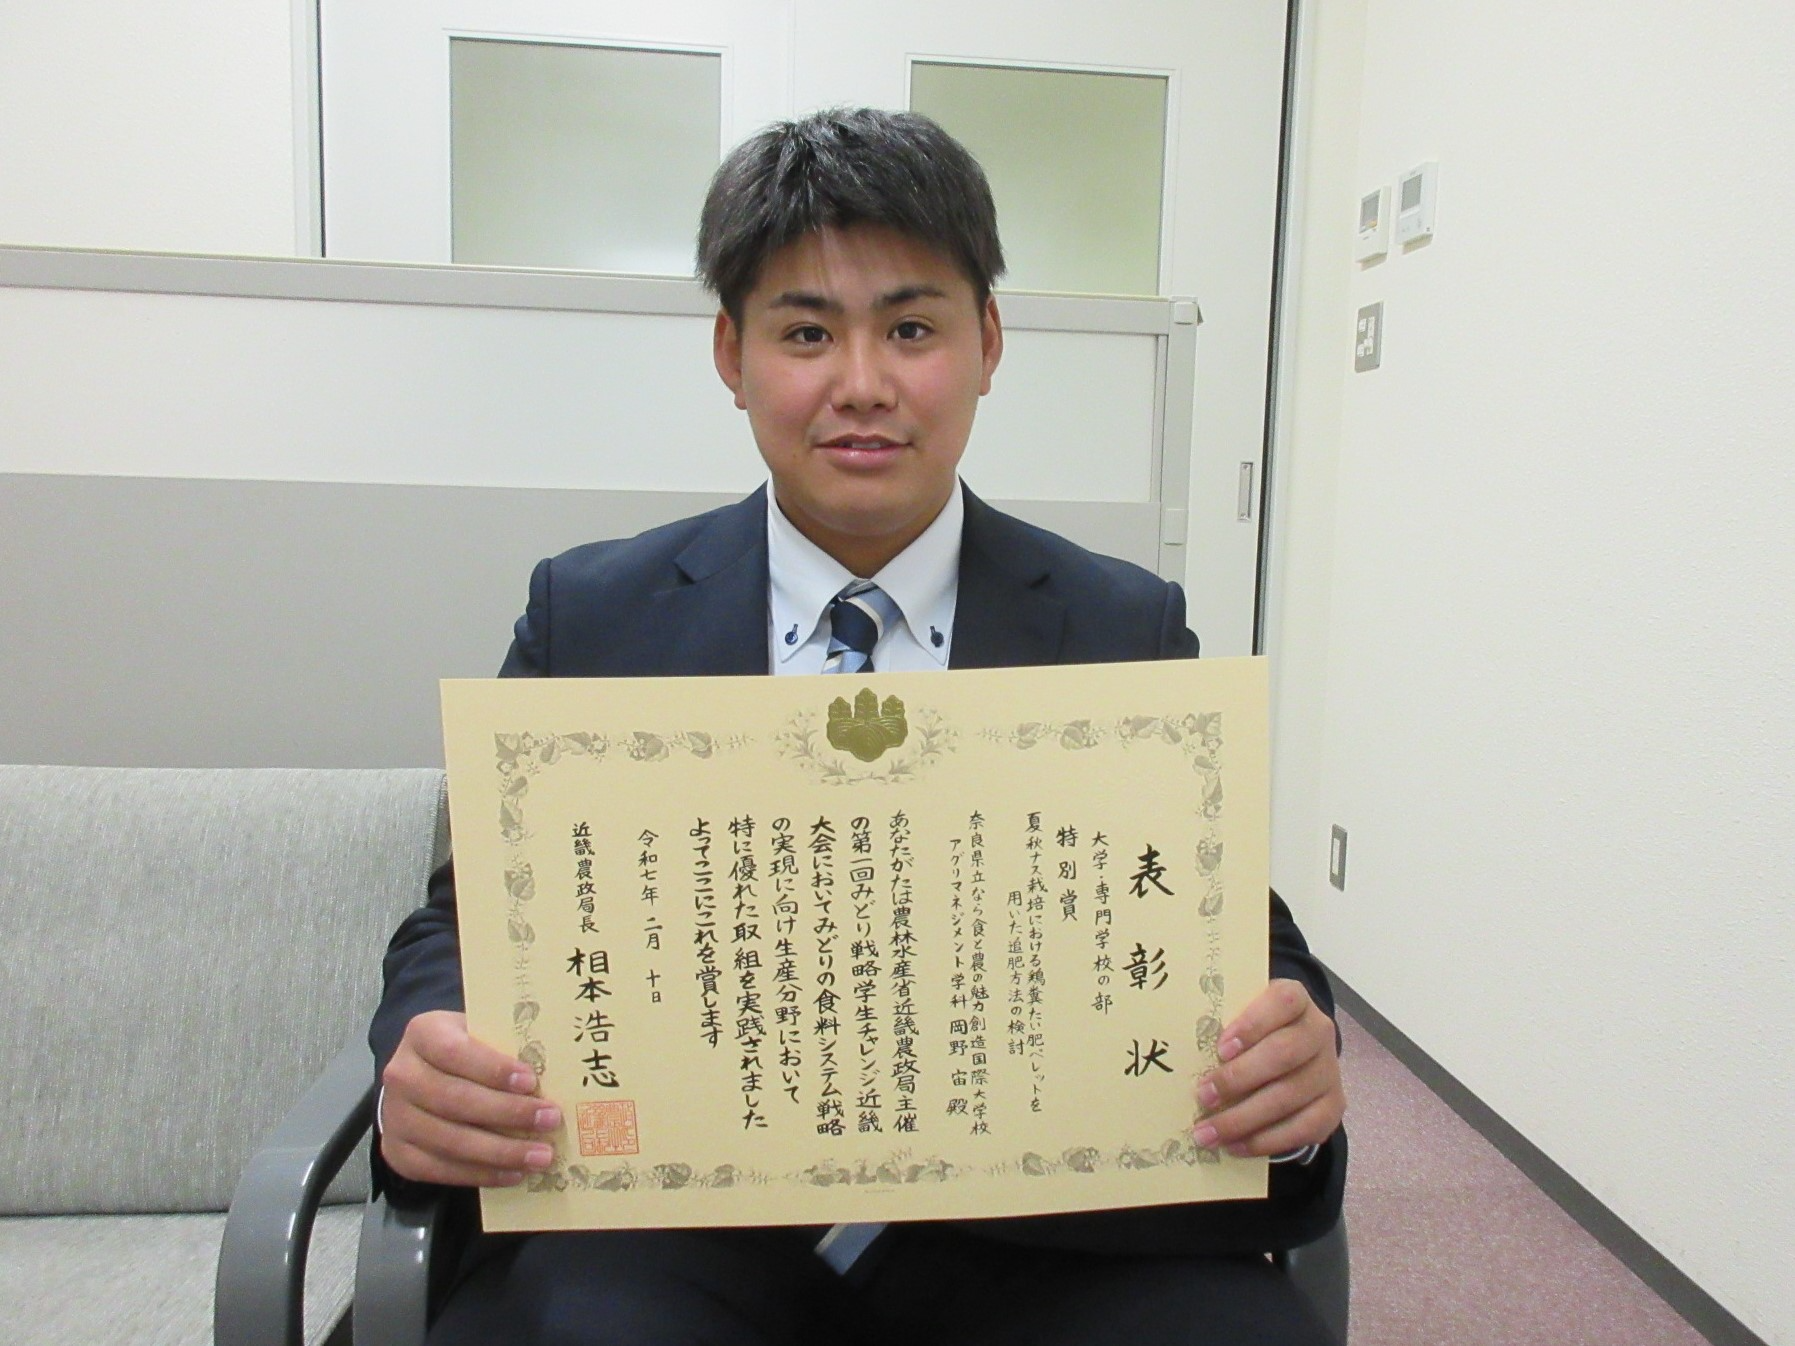 表彰状
大学・専門学校の部
特別賞
夏秋ナス栽培における鶏糞たい肥ペレットを
用いた追肥方法の検討
奈良県立なら食と農の魅力創造国際大学校
アグリマネジメント学科 岡野 宙 殿
あなたがたは農林水産省近畿農政局主催
の第一回みどり戦略学生チャレンジ近畿
大会においてみどりの食料システム戦略
の実現に向け生産分野において
特に優れた取組を実践されました
よってここにこれを賞します
令和七年 二月 十日
近畿農政局長 相本浩志